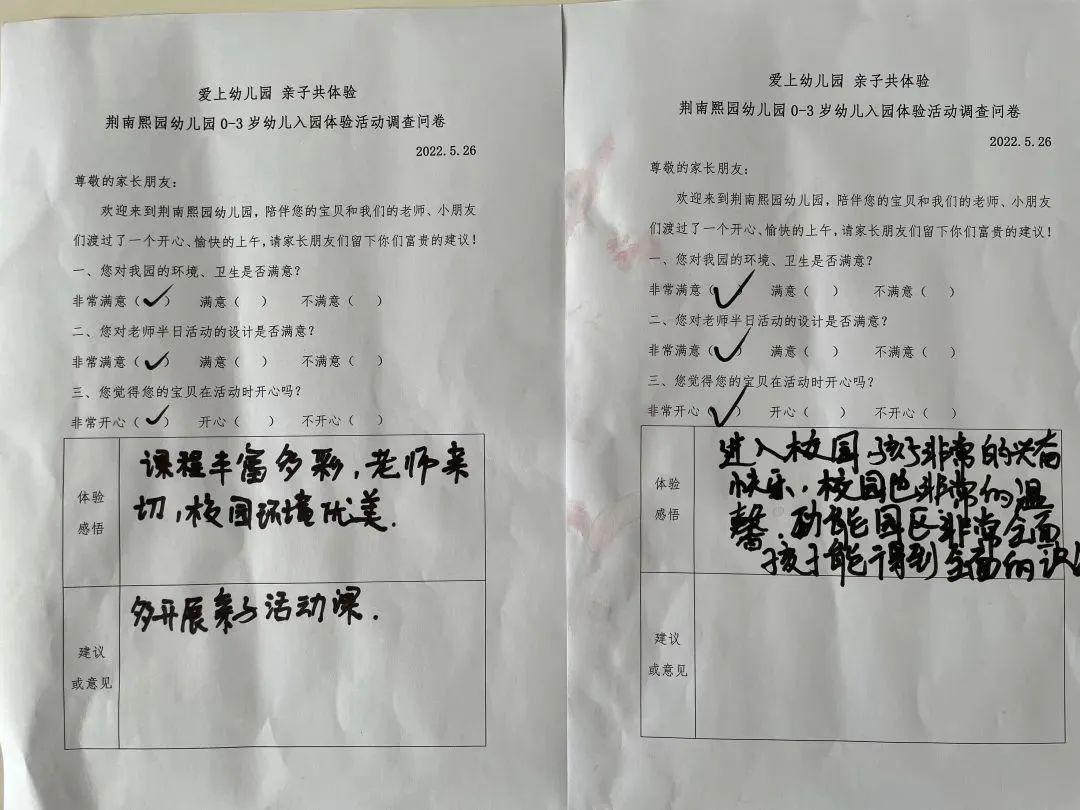 爱上幼儿园 亲子共体验
荆南熙园幼儿园0-3岁幼儿入园体验活动调查问卷
2022.5.26
尊敬的家长朋友：
欢迎来到荆南熙园幼儿园，陪伴您的宝贝和我们的老师、小朋友
们渡过了一个开心、愉快的上午，请家长朋友们留下你们富贵的建议！
一、您对我园的环境、卫生是否满意？
非常满意（✓） 满意（ ） 不满意（ ）
二、您对老师半日活动的设计是否满意？
非常满意（✓） 满意（ ） 不满意（ ）
三、您觉得您的宝贝在活动时开心吗？
非常开心（✓） 开心（ ） 不开心（ ）
体验
感悟
课程丰富多彩，老师亲
切，校园环境优美.
建议
或意见
多开展亲子活动课.
爱上幼儿园 亲子共体验
荆南熙园幼儿园0-3岁幼儿入园体验活动调查问卷
2022.5.26
尊敬的家长朋友：
欢迎来到荆南熙园幼儿园，陪伴您的宝贝和我们的老师、小朋友
们渡过了一个开心、愉快的上午，请家长朋友们留下你们富贵的建议！
一、您对我园的环境、卫生是否满意？
非常满意（✓） 满意（ ） 不满意（ ）
二、您对老师半日活动的设计是否满意？
非常满意（✓） 满意（ ） 不满意（ ）
三、您觉得您的宝贝在活动时开心吗？
非常开心（✓） 开心（ ） 不开心（ ）
体验
感悟
进入校园，孩子非常的兴奋
快乐，校园也非常的温
馨.功能园区非常全面
孩子能得到全面的识
建议
或意见